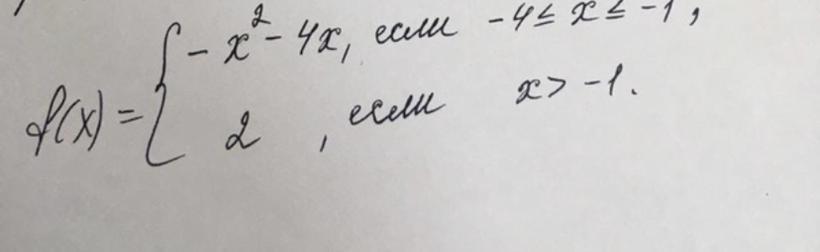 f(x) = { - x² - 4x, если -4 ≤ x ≤ -1,
2 , если x > -1.